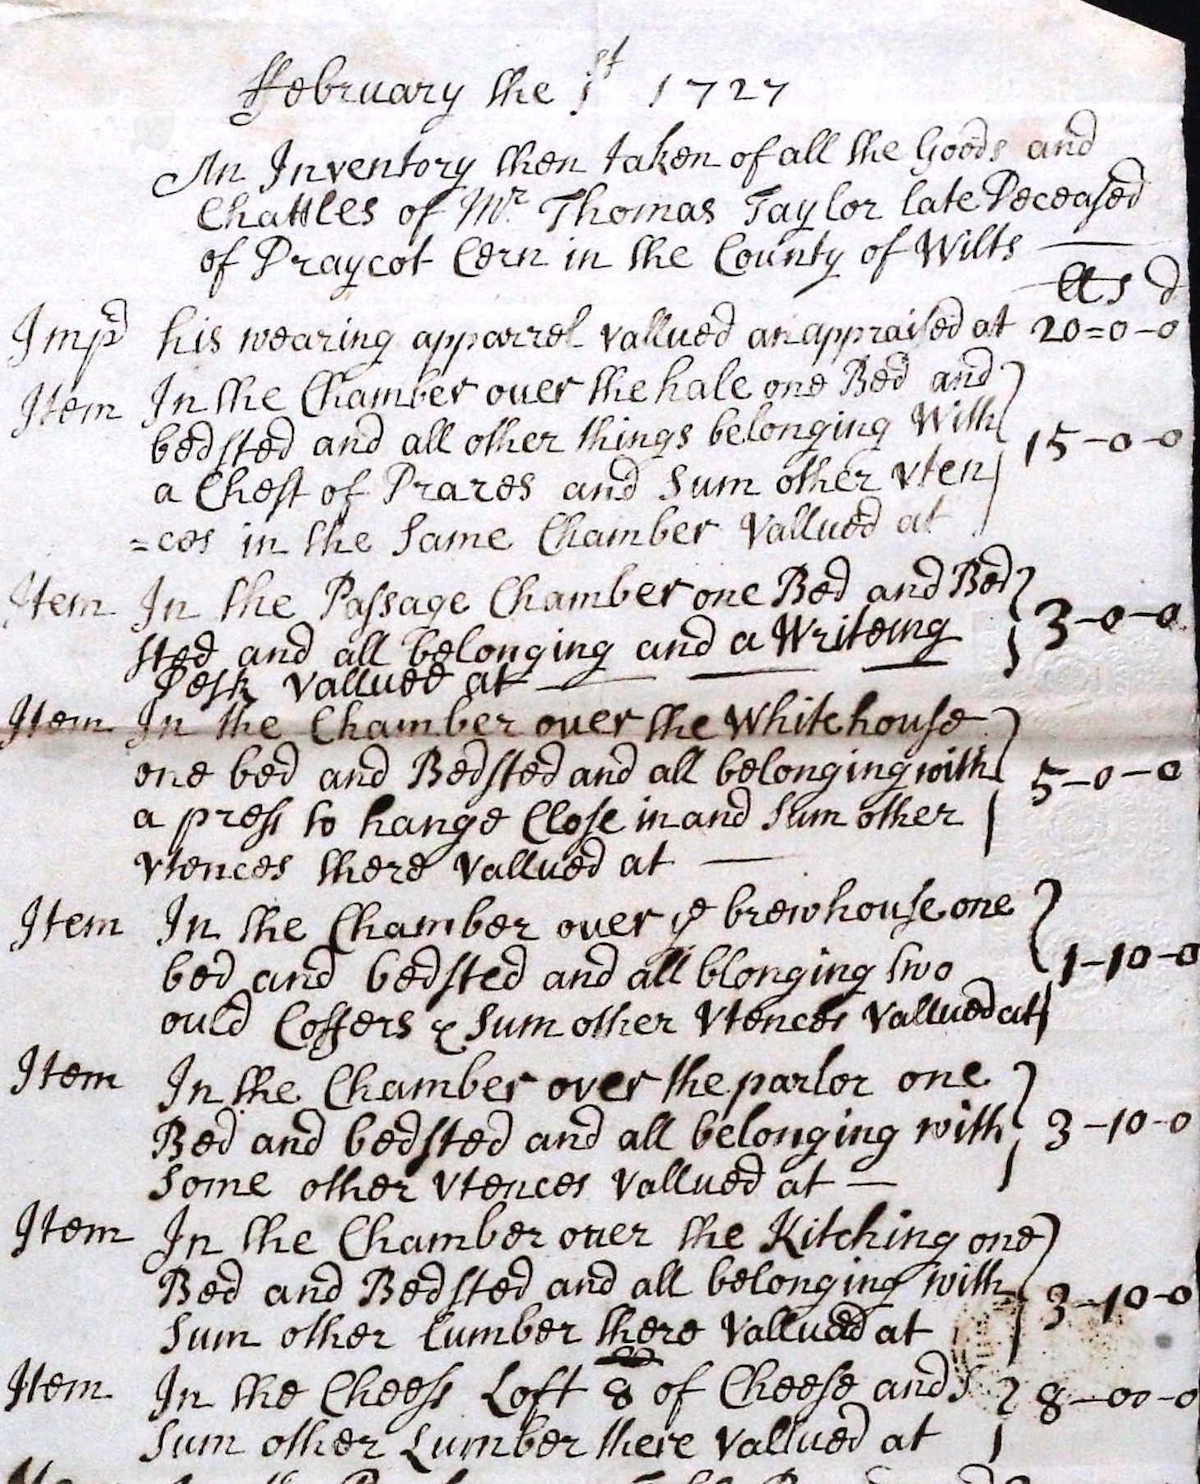 ffebruary the 1st 1727
An Inventory then taken of all the Goods and
Chattles of Mr Thomas Taylor late Deceased
of Draycot Cern in the County of Wilts
ll s d
Impd his wearing apparrel vallued an appraised at 20=0-0
Item In the Chamber over the hale one Bed and
bedsted and all other things belonging With
a Chest of Drares and Sum other vten 15-0-0
=ces in the Same Chamber vallued at
Item In the Passage Chamber one Bed and Bed
sted and all belonging and a Writeing 3-0-0
Desk vallued at
Item In the Chamber over the Whitehouse
one bed and Bedsted and all belonging with 5-0-0
a press to hange Close in and Sum other
vtences there vallued at
Item In the Chamber over ye brewhouse one
bed and bedsted and all blonging two 1-10-0
ould Coffers & Sum other vtences vallued at
Item In the Chamber over the parlor one
Bed and bedsted and all belonging with 3-10-0
Some other vtences vallued at
Item In the Chamber over the Kitching one
Bed and Bedsted and all belonging with 3-10-0
Sum other Lumber there vallued at
Item In the Cheess Loft 8 of Cheese and 8-00-0
Sum other Lumber there vallued at